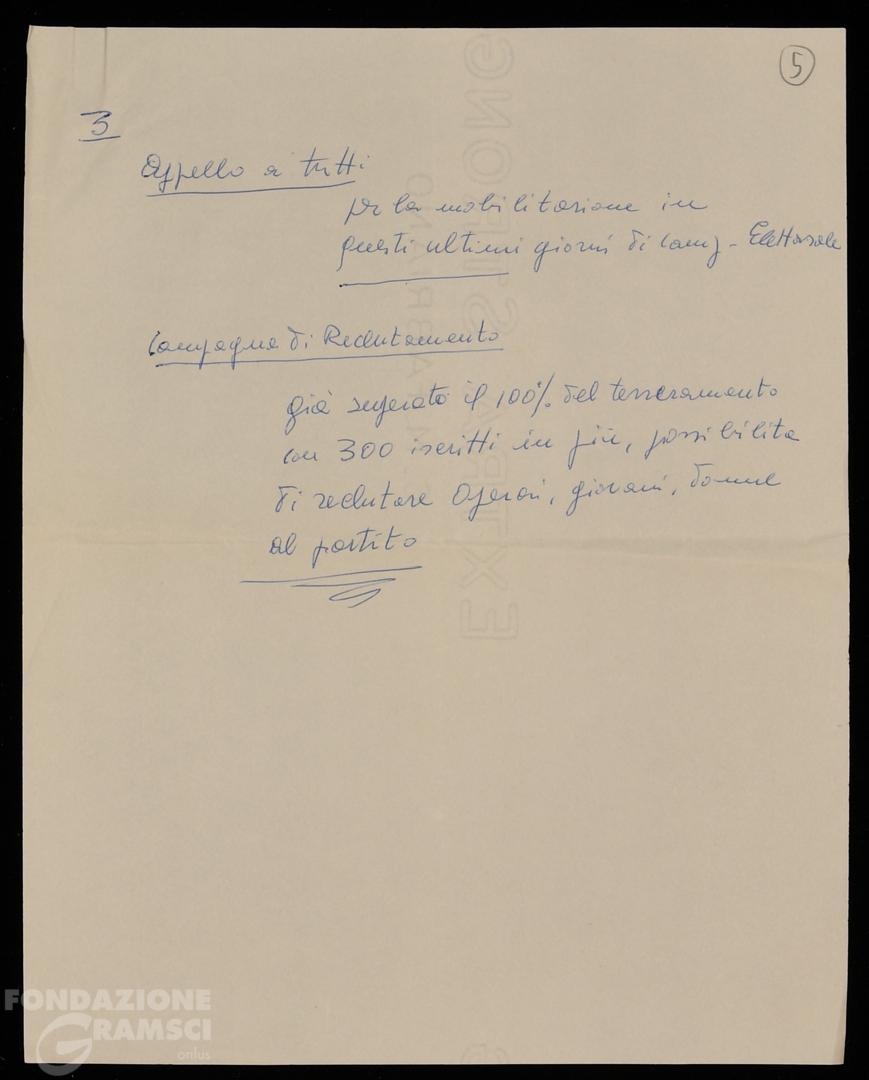 5
3
Appello a tutti
per la mobilitazione in
questi ultimi giorni di camp - Elettorale
Campagna di Reclutamento
già superato il 100% del tesseramento
con 300 iscritti in più, possibilita
di reclutare Operai, giovani, donne
al partito
EXTRA STRONG
FONDAZIONE
GRAMSCI
onlus